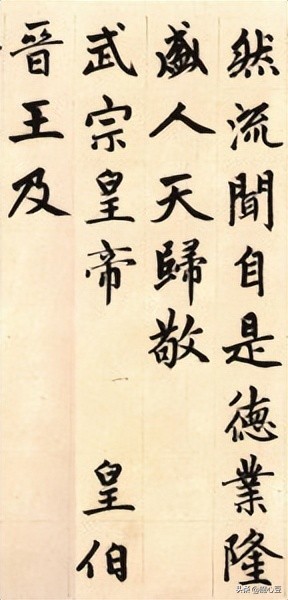 然流聞自是德業隆
盛人天歸敬
武宗皇帝 皇伯
晉王及
头条@